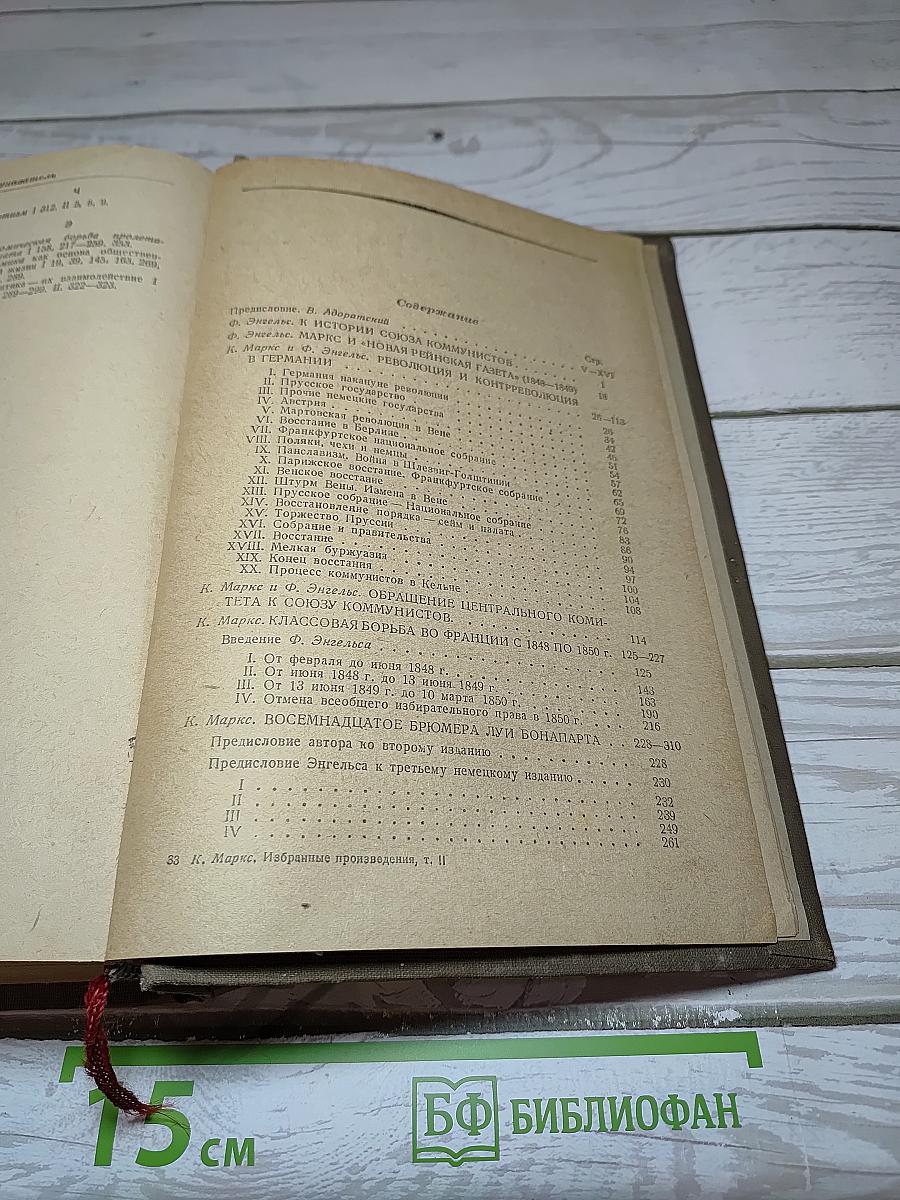 Ч
I 312. II 5, 8, 9.
Э
борьба пролета-
I 158, 217—259, 353.
как основа обществен-
жизни I 19, 39, 145, 163, 269,
289.
их взаимодействие I
289—290. II. 322—323.
Содержание
Стр.
Предисловие. В. Адоратский V—XVI
Ф. Энгельс. К ИСТОРИИ СОЮЗА КОММУНИСТОВ 1
Ф. Энгельс. МАРКС И «НОВАЯ РЕЙНСКАЯ ГАЗЕТА» (1848—1849) 18
К. Маркс и Ф. Энгельс. РЕВОЛЮЦИЯ И КОНТРРЕВОЛЮЦИЯ
В ГЕРМАНИИ 26—113
I. Германия накануне революции 26
II. Прусское государство 34
III. Прочие немецкие государства 42
IV. Австрия 46
V. Мартовская революция в Вене 51
VI. Восстание в Берлине 54
VII. Франкфуртское национальное собрание 57
VIII. Поляки, чехи и немцы 62
IX. Панславизм. Война в Шлезвиг-Голштинии 65
X. Парижское восстание. Франкфуртское собрание 69
XI. Венское восстание 72
XII. Штурм Вены. Измена в Вене 76
XIII. Прусское собрание — Национальное собрание 83
XIV. Восстановление порядка — сейм и палата 86
XV. Торжество Пруссии 90
XVI. Собрание и правительства 94
XVII. Восстание 97
XVIII. Мелкая буржуазия 100
XIX. Конец восстания 104
XX. Процесс коммунистов в Кельне 108
К. Маркс и Ф. Энгельс. ОБРАЩЕНИЕ ЦЕНТРАЛЬНОГО КОМИ-
ТЕТА К СОЮЗУ КОММУНИСТОВ. 114
К. Маркс. КЛАССОВАЯ БОРЬБА ВО ФРАНЦИИ С 1848 ПО 1850 г. 125—227
Введение Ф. Энгельса 125
I. От февраля до июня 1848 г. 143
II. От июня 1848 г. до 13 июня 1849 г. 163
III. От 13 июня 1849 г. до 10 марта 1850 г. 190
IV. Отмена всеобщего избирательного права в 1850 г. 216
К. Маркс. ВОСЕМНАДЦАТОЕ БРЮМЕРА ЛУИ БОНАПАРТА 228—310
Предисловие автора ко второму изданию 228
Предисловие Энгельса к третьему немецкому изданию 230
I 232
II 239
III 249
IV 261
33 К. Маркс. Избранные произведения, т. II
15 см
БФ БИБЛИОФАН